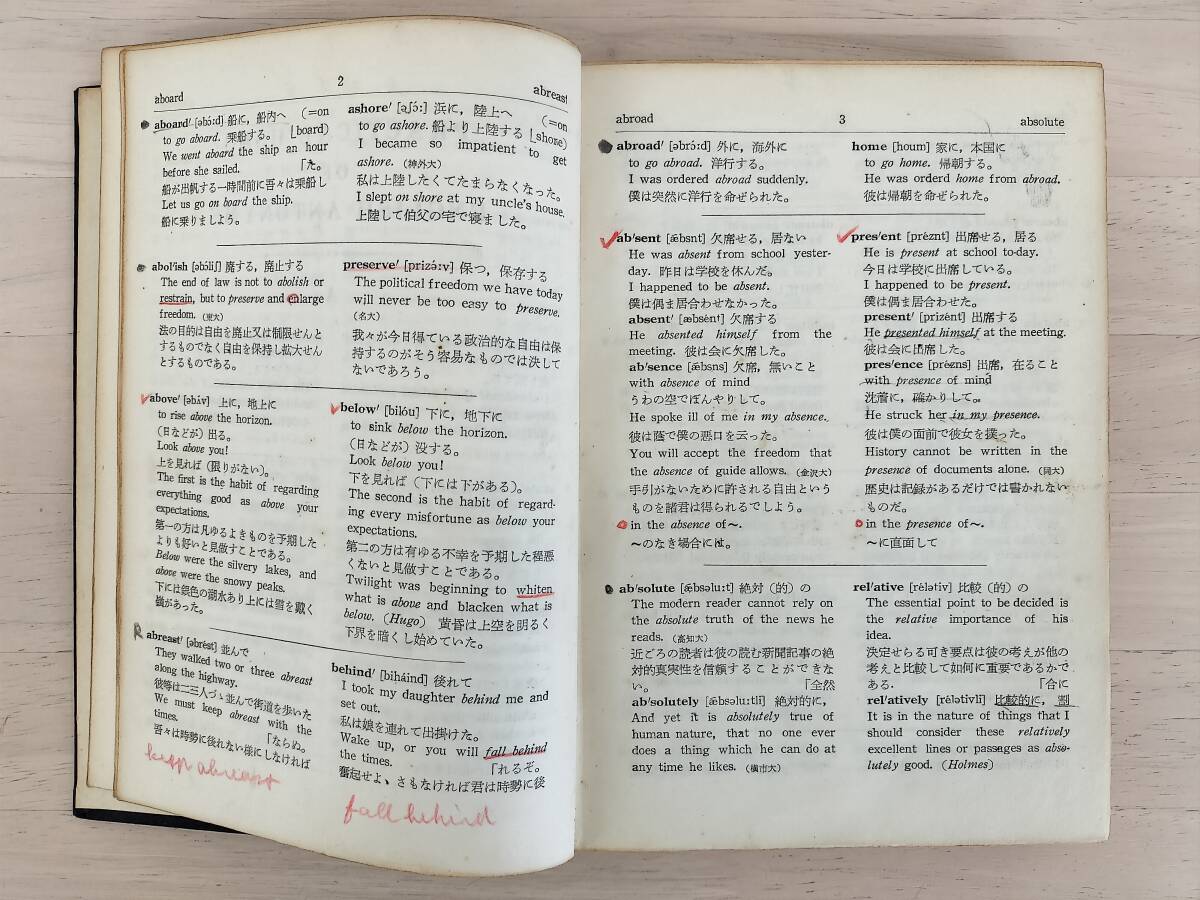 2
aboard
abreast
aboard′ [əbɔ́ːd] 船に，船内へ (=on
to go aboard. 乗船する。 ⌊board)
We went aboard the ship an hour
before she sailed. 「た。
船が出帆する一時間前に吾々は乗船し
Let us go on board the ship.
船に乗りましよう。
ashore′ [əʃɔ́ː] 浜に，陸上へ
to go ashore. 船より上陸する (=on
⌊shore)
I became so impatient to get
ashore. (神外大)
私は上陸したくてたまらなくなった。
I slept on shore at my uncle's house.
上陸して伯父の宅で寝ました。
abol′ish [əbɔ́liʃ] 廃する，廃止する
The end of law is not to abolish or
restrain, but to preserve and enlarge
freedom. (東大)
法の目的は自由を廃止又は制限せんと
するものでなく自由を保持し拡大せん
とするものである。
preserve′ [prizə́ːv] 保つ，保存する
The political freedom we have today
will never be too easy to preserve.
(名大)
我々が今日得ている政治的な自由は保
持するのがそう容易なものでは決して
ないであろう。
above′ [əbʌ́v] 上に，地上に
to rise above the horizon.
(日などが) 出る。
Look above you!
上を見れば (限りがない)。
The first is the habit of regarding
everything good as above your
expectations.
第一の方は凡ゆるよきものを予期した
よりも好いと見做すことである。
Below were the silvery lakes, and
above were the snowy peaks.
下には銀色の湖水あり上には雪を戴く
嶺があった。
below′ [bilóu] 下に，地下に
to sink below the horizon.
(日などが) 没する。
Look below you!
下を見れば (下には下がある)。
The second is the habit of regard-
ing every misfortune as below your
expectations.
第二の方は有ゆる不幸を予期した程悪
くないと見做すことである。
Twilight was beginning to whiten
what is above and blacken what is
below. (Hugo) 黄昏は上空を明るく
下界を暗くし始めていた。
abreast′ [əbrést] 並んで
They walked two or three abreast
along the highway.
彼等は二三人づゝ並んで街道を歩いた
We must keep abreast with the
times. 「ならぬ。
吾々は時勢に後れない様にしなければ
keep abreast
behind′ [biháind] 後れて
I took my daughter behind me and
set out.
私は娘を連れて出掛けた。
Wake up, or you will fall behind
the times. 「れるぞ。
奮起せよ、さもなければ君は時勢に後
fall behind
abroad
3
absolute
abroad′ [əbrɔ́ːd] 外に，海外に
to go abroad. 洋行する。
I was ordered abroad suddenly.
僕は突然に洋行を命ぜられた。
home [houm] 家に，本国に
to go home. 帰朝する。
He was orderd home from abroad.
彼は帰朝を命ぜられた。
ab′sent [ǽbsnt] 欠席せる，居ない
He was absent from school yester-
day. 昨日は学校を休んだ。
I happened to be absent.
僕は偶ま居合わせなかった。
absent′ [æbsént] 欠席する
He absented himself from the
meeting. 彼は会に欠席した。
ab′sence [ǽbsns] 欠席，無いこと
with absence of mind
うわの空でぼんやりして。
He spoke ill of me in my absence.
彼は蔭で僕の悪口を云った。
You will accept the freedom that
the absence of guide allows. (金沢大)
手引がないために許される自由という
ものを諸君は得られるでしよう。
in the absence of～.
～のなき場合には。
pres′ent [préznt] 出席せる，居る
He is present at school to-day.
今日は学校に出席している。
I happened to be present.
僕は偶ま居合わせた。
present′ [prizént] 出席する
He presented himself at the meeting.
彼は会に出席した。
pres′ence [prézns] 出席，在ること
with presence of mind
沈着に，確かりして。
He struck her in my presence.
彼は僕の面前で彼女を撲った。
History cannot be written in the
presence of documents alone. (岡大)
歴史は記録があるだけでは書かれない
ものだ。
in the presence of～.
～に直面して
ab′solute [ǽbsəluːt] 絶対 (的) の
The modern reader cannot rely on
the absolute truth of the news he
reads. (高知大)
近ごろの読者は彼の読む新聞記事の絶
対的真実性を信頼することができな
い。 「全然
ab′solutely [ǽbsəluːtli] 絶対的に，
And yet it is absolutely true of
human nature, that no one ever
does a thing which he can do at
any time he likes. (横市大)
rel′ative [rélətiv] 比較 (的) の
The essential point to be decided is
the relative importance of his
idea.
決定せらる可き要点は彼の考えが他の
考えと比較して如何に重要であるかで
ある. 「合に
rel′atively [rélətivli] 比較的に，割
It is in the nature of things that I
should consider these relatively
excellent lines or passages as abso-
lutely good. (Holmes)